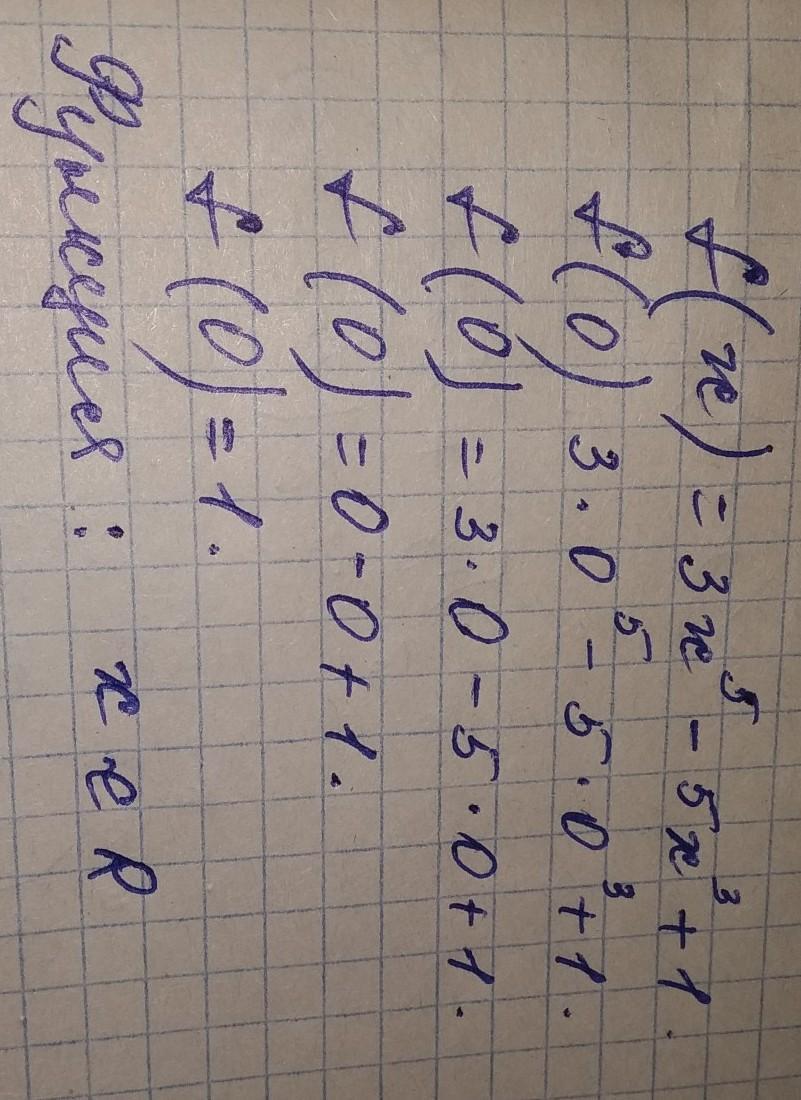 f(x) = 3x⁵ - 5x³ + 1.
f(0) 3·0⁵ - 5·0³ + 1.
f(0) = 3·0 - 5·0 + 1.
f(0) = 0 - 0 + 1.
f(0) = 1.
Функция : x e R